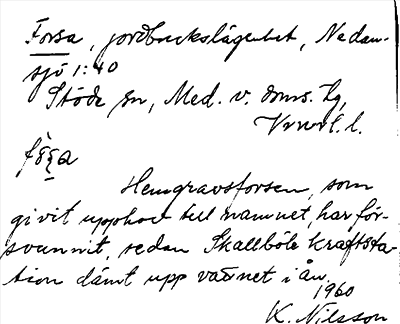 Forsa, jordbrukslägenhet, Nedan-
sjö 1:40
Stöde sn, Med. v. doms. tg,
Vnrl. l.
Hemgravsforsen, som
givit upphov till namnet, har för-
svunnit, sedan Skallböle kraftsta-
tion dämt upp vattnet i ån.
1960
K. Nilsson